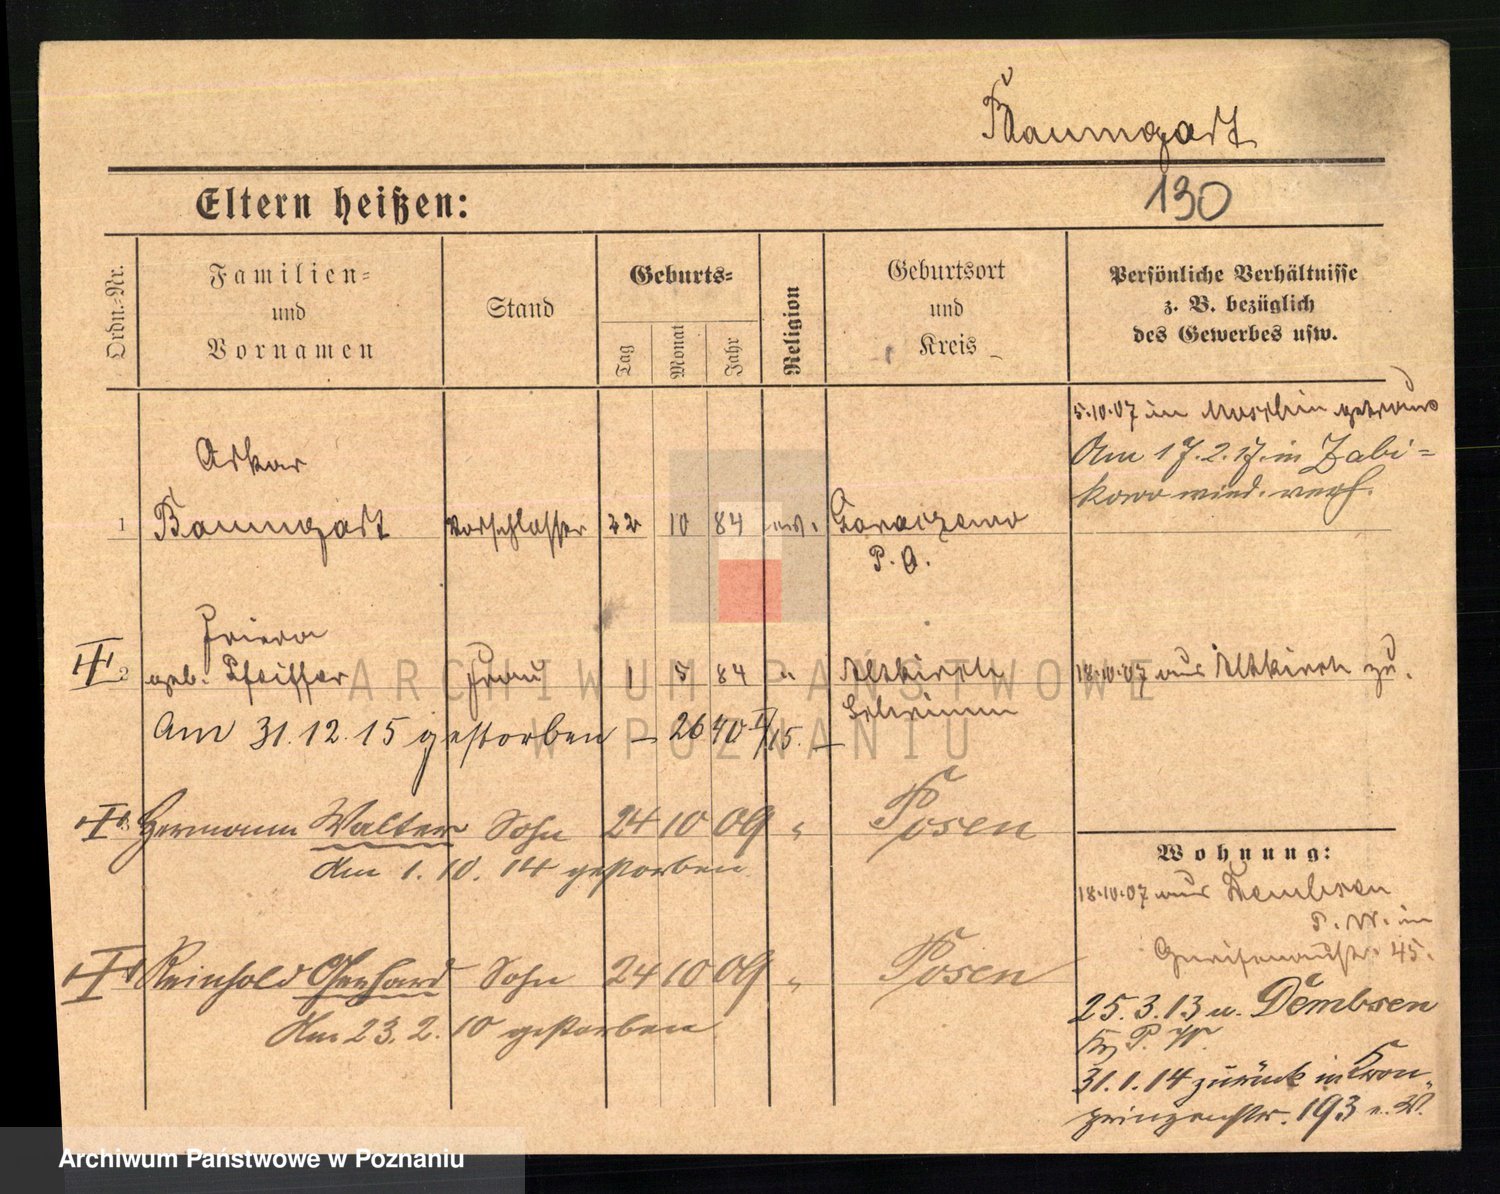 Baumgart
130
Eltern heißen:
Ordn.-Nr.
Familien-
und
Vornamen
Stand
Geburts-
Tag
Monat
Jahr
Religion
Geburtsort
und
Kreis
Persönliche Verhältnisse
z. B. bezüglich
des Gewerbes usw.
5.10.07 in Moschin getraut
Am 17.2.17. in Zabi-
kowo wied. verh.
Oskar
1 Baumgart Vorschlosser 22 10 84 ev. Goraczewo
P. O.
2 geb. Pfeiffer Frau 1 5 84 " Altkirch
Schrimm
18.10.07 aus Altkirch zu.
Am 31.12.15 gestorben – 2640 I/15. –
3 Hermann Walter Sohn 24 10 09 " Posen
Am 1. 10. 14 gestorben
Reinhold Gerhard Sohn 24 10 09 " Posen
Am 23. 2. 10 gestorben
Wohnung:
18.10.07 aus Dembsen
P. W. in
Gneisenaustr. 45.
25. 3. 13 n. Dembsen
Kr. P. W.
31. 1. 14 zurück in Kron-
prinzenstr. 193 e. W.
ARCHIWUM PAŃSTWOWE
W POZNANIU
Archiwum Państwowe w Poznaniu